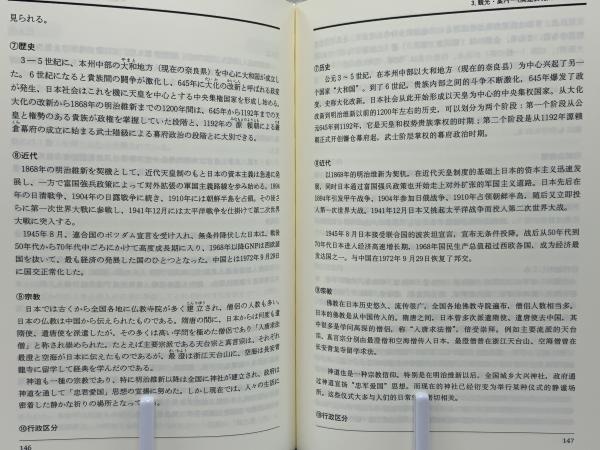 見られる。
⑦歴史
3－5世紀に、本州中部の大和地方（現在の奈良県）を中心に大和国が成立し
た。6世紀になると貴族間の闘争が激化し、645年に大化の改新と呼ばれる政変
が発生、日本社会はこれを機に天皇を中心とする中央集権国家を形成し始める。
大化の改新から1868年の明治維新までの1200年間は、645年から1192年までの天
皇と権勢のある貴族が政権を掌握していた段階と、1192年の源頼朝による鎌
倉幕府の成立に始まる武士階級による幕府政治の段階とに大別できる。
⑧近代
1868年の明治維新を契機として、近代天皇制のもと日本の資本主義は急速に発
展し、一方で富国強兵政策によって対外拡張の軍国主義路線を歩み始める。1894
年の日清戦争、1904年の日露戦争に続き、1910年には朝鮮半島を占領。その後さ
らに第一次世界大戦に参戦し、1941年12月には太平洋戦争を仕掛けて第二次世界
大戦に突入する。
1945年8月、連合国のポツダム宣言を受け入れ、無条件降伏した日本は、戦後
50年代から70年代中ごろにかけて高度成長期に入り、1968年以降GNPは西欧諸
国を抜いて、最も経済の発展した国のひとつとなった。中国とは1972年9月29日
に国交正常化した。
⑨宗教
日本では古くから全国各地に仏教寺院が多く建立され、僧侶の人数も多い。
日本の仏教は中国から伝えられたものである。隋唐の間に、日本からは何度も
遣隋使、遣唐使を派遣したが、その多くは高い学問を極めた僧侶であり「入唐求法
僧」と称され崇められた。たとえば主要宗派である天台宗と真言宗は、それぞれ
最澄と空海が日本に伝えたものであるが、最澄は浙江天台山に、空海は長安青
龍寺に留学して経典を学んだのである。
神道も一種の宗教であり、特に明治維新以降は全国に神社が建立され、政府は
神道を通して「忠君愛国」思想の宣揚に努めた。しかし現在では、人々の生活に
密着した静かな祈りの場所となって
⑩行政区分
146
⑦历史
公元3～5世纪，在本州中部以大和地方（现在的奈良县）为中心兴起了另一
个国家“大和国”。到了6世纪，贵族内部之间的斗争不断激化，645年爆发了政
变，史称大化改新。日本社会从此开始形成以天皇为中心的中央集权国家。从大化
改新到明治维新以前的1200年左右的历史，可以划分为两个阶段：第一个阶段从公
元645年到1192年，它是天皇和权势贵族掌权的时期；第二个阶段是从1192年源赖
朝正式开创镰仓幕府起，武士阶层掌权的幕府政治时期。
⑧近代
以1868年的明治维新为契机，在近代天皇制的基础上日本的资本主义迅速发
展，同时日本通过富国强兵政策也开始走上对外扩张的军国主义道路。日本先后在
1894年引发甲午战争，1904年参加日俄战争，1910年占领朝鲜半岛，随后又立即投
入第一次世界大战，1941年12月日本又挑起太平洋战争而投入第二次世界大战。
1945年8月日本接受联合国的波茨坦宣言，宣布无条件投降。战后从50年代到
70年代日本进入经济高速增长期，1968年国民生产总值超过西欧各国，成为经济最
发达国之一。与中国在1972年9月29日恢复了邦交。
⑨宗教
佛教在日本历史悠久、流传很广，全国各地佛教寺院遍布，僧侣人数相当多。
日本的佛教是从中国传入的。隋唐之间，日本曾多次派遣隋使、遣唐使去中国。其
中很多是学问高深的僧侣，称“入唐求法僧”，倍受崇拜。例如主要流派的天台
宗、真言宗分别由最澄僧和空海僧传入日本。最澄僧曾在浙江天台山、空海僧曾在
长安青龙寺留学求法。
神道也是一种宗教信仰，特别是在明治维新以后，全国城乡大兴神社，政府通
过神道宣扬“忠军爱国”思想。而现在的神社已经衍变为举行某种仪式的静谧场
所，这些仪式大多与人们的日常
密切相关。
⑩行政区分
147